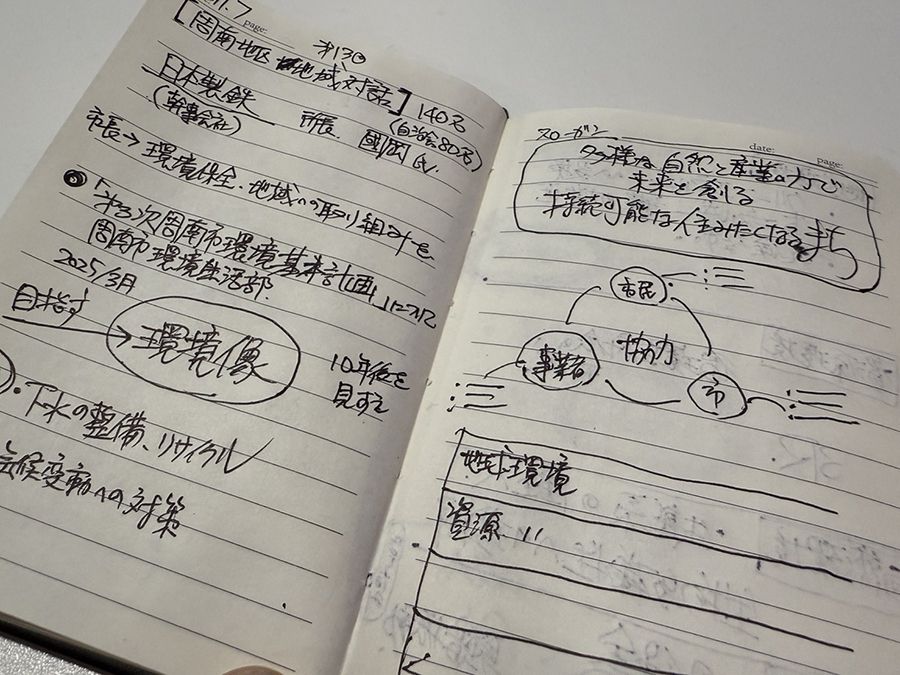 page:
第13回
[周南地区 地域対話] 140名
日本製鉄
(幹事会社)
所長
國岡 氏
(自治会80名)
市長→環境保全・地域への取り組みを
第3次周南市環境基本計画」について
周南市環境生活部
2025/3月
目指す
→環境像
10年後を
見すえ
・下水の整備、リサイクル
気候変動への対策
スローガン
date:
page:
多様な自然と産業の力で
未来を創る
持続可能な人生みたくなるまち
市民
協力
事業者
市
地球環境
資源 〃